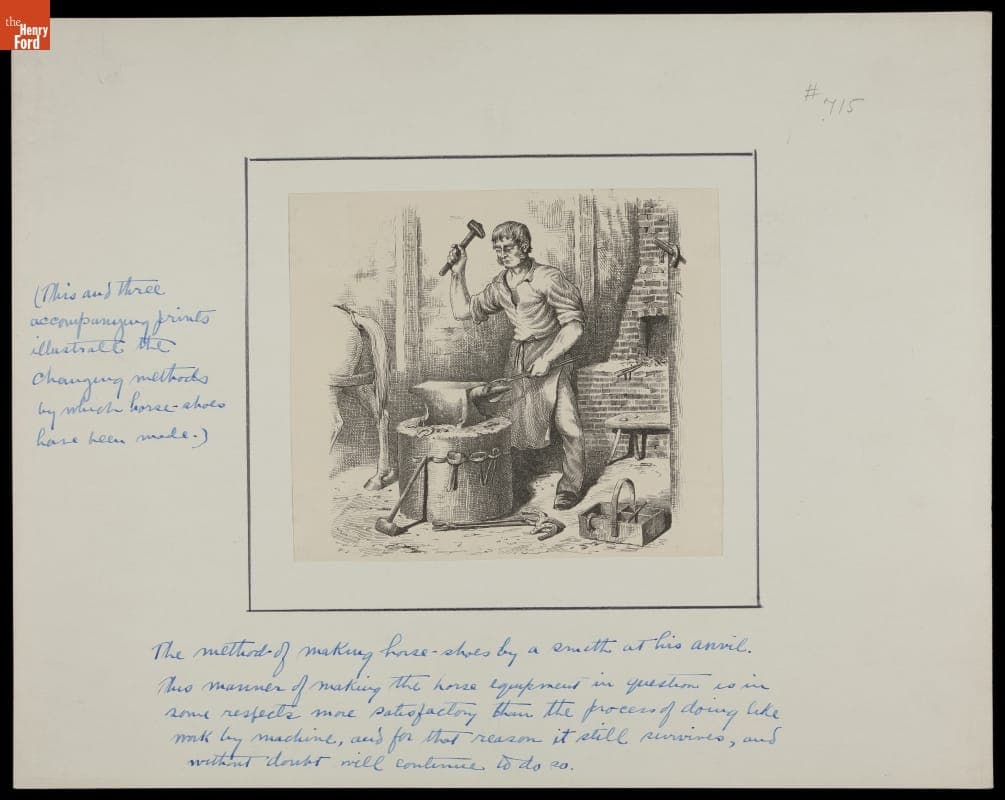 the
Henry
Ford
# 715
(This and three
accompanying prints
illustrate the
changing methods
by which horse-shoes
have been made.)
The method of making horse-shoes by a smith at his anvil.
This manner of making the horse equipment in question is in
some respects more satisfactory than the process of doing like
work by machine, and for that reason it still survives, and
without doubt will continue to do so.